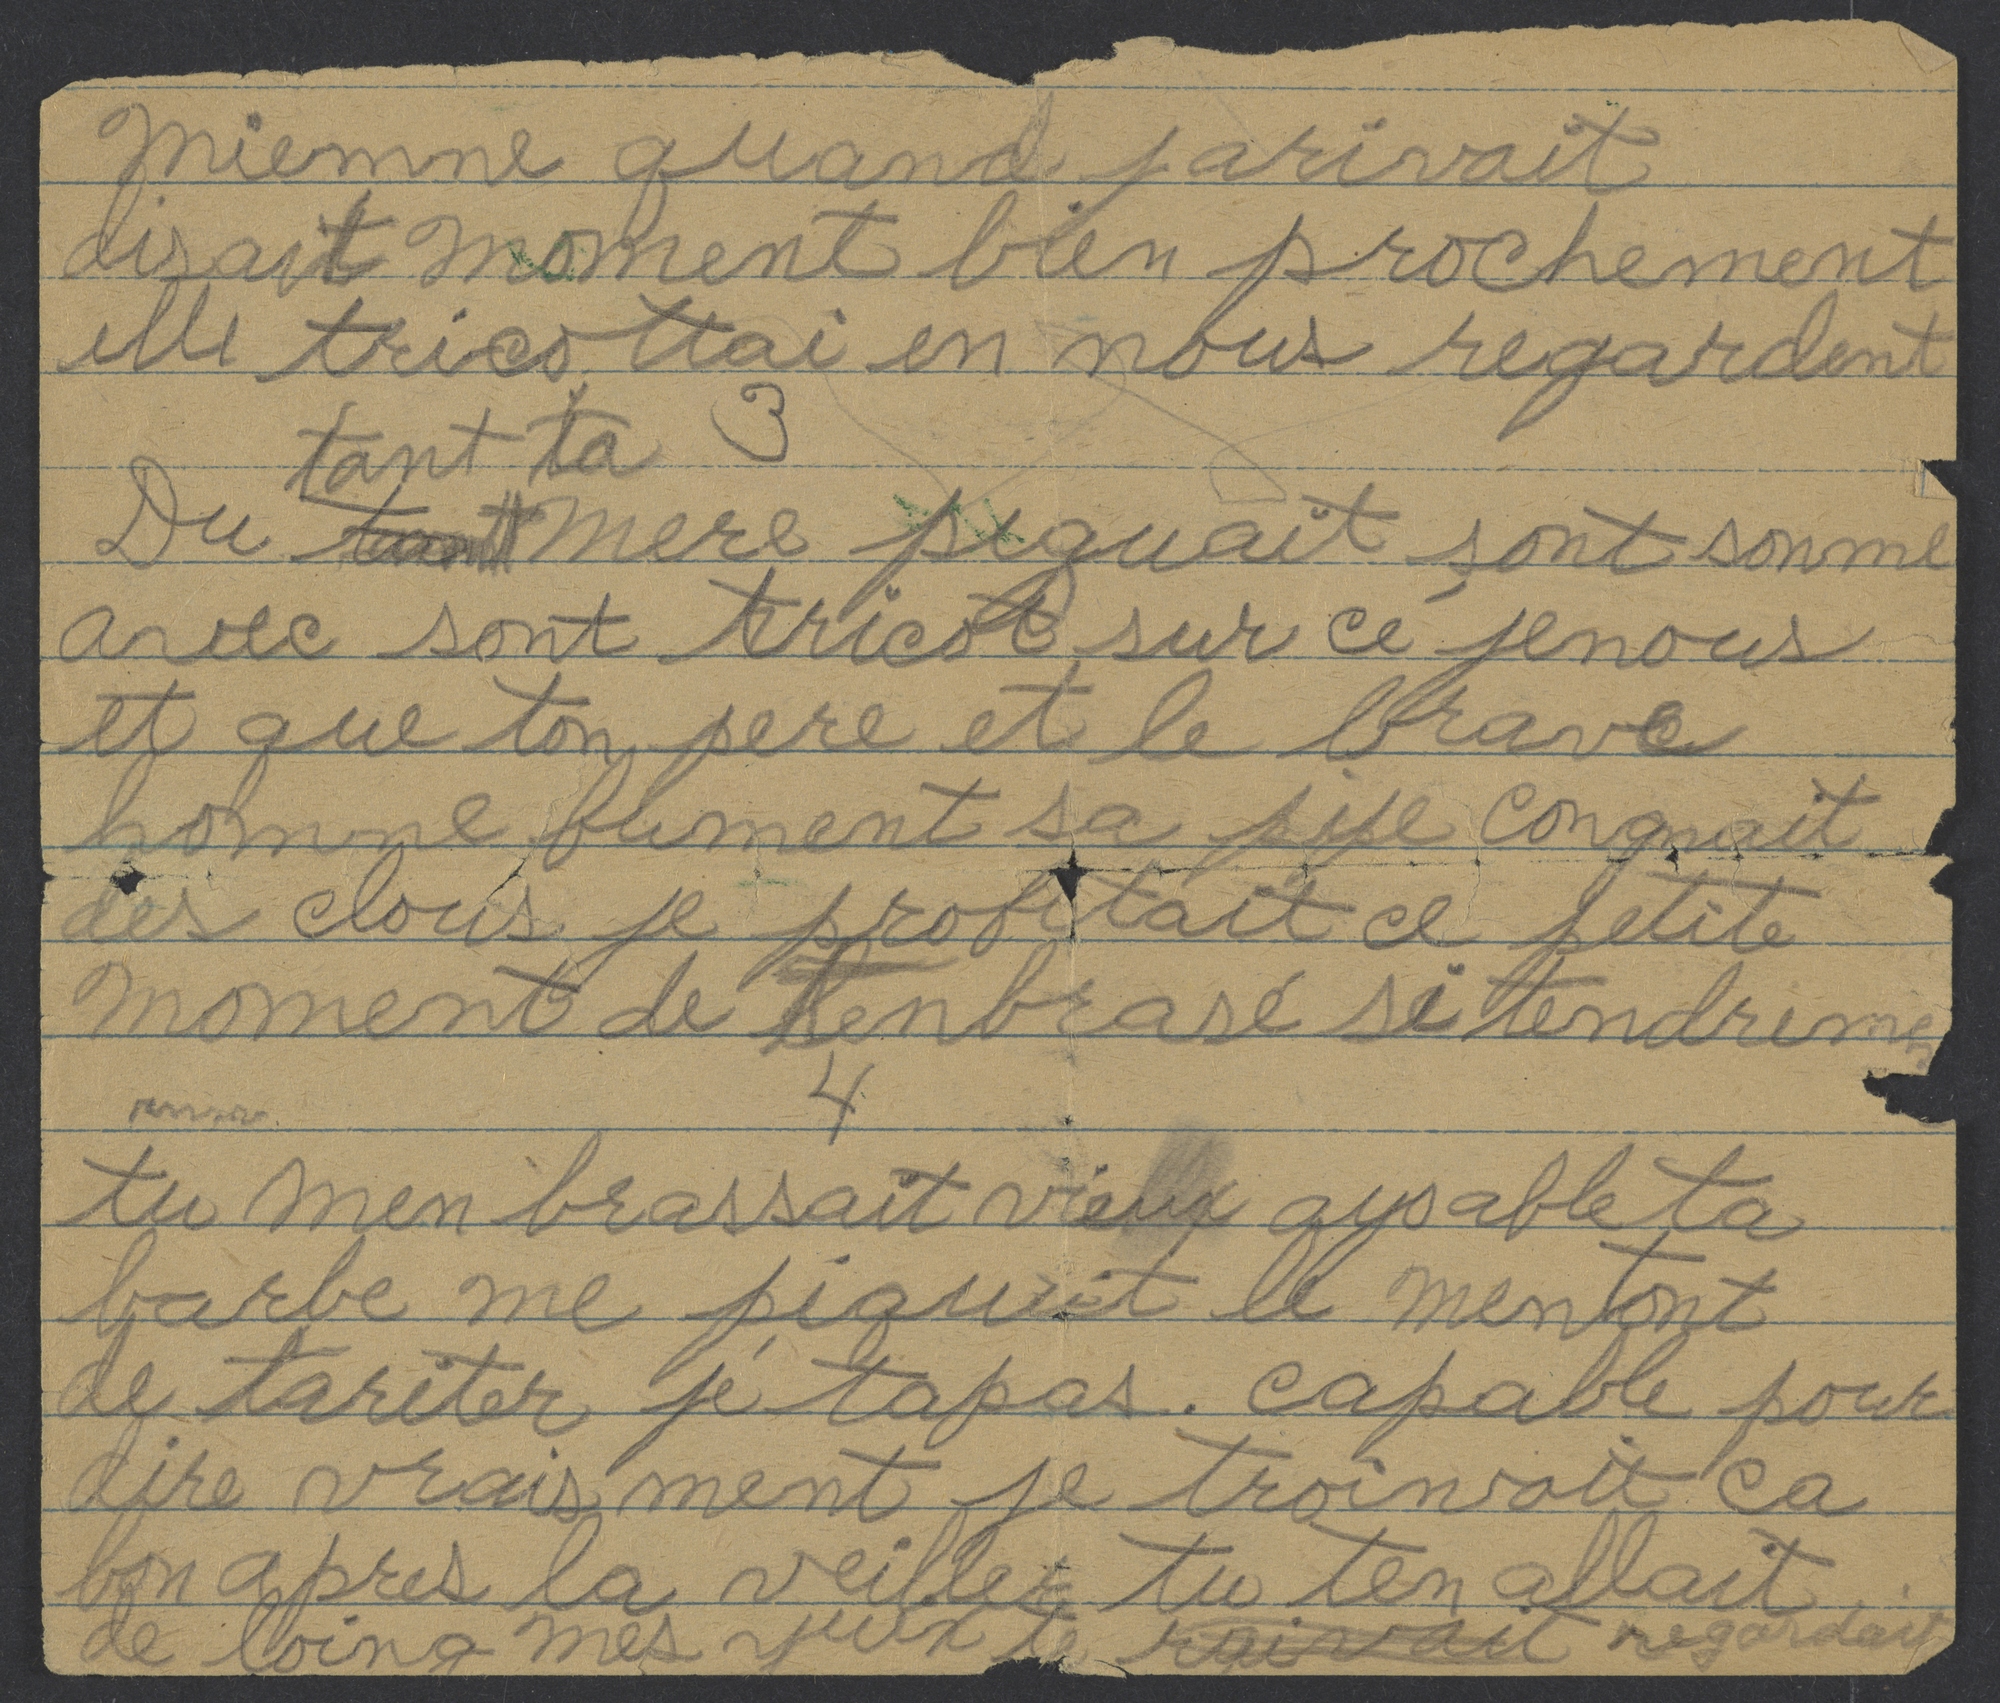 Miemne quand jarivait
disait moment bien prochement
elle tricottai en nous regardent
tant ta 3
Du mere piquait sont somme
avec sont tricot sur cé jenous
et que ton pere et le brave
homme fument sa pipe congnait
des clous je profitait ce petite
moment de tenbrasé si tendreme
4
tu men brassait vieux aysable ta
barbe me piquait le mentont
de tariter jé tapas. capable pour
dire vrais ment je troinvait ca
bon apres la veillez tu ten allait
de loing mes yeux te roirvait regardait